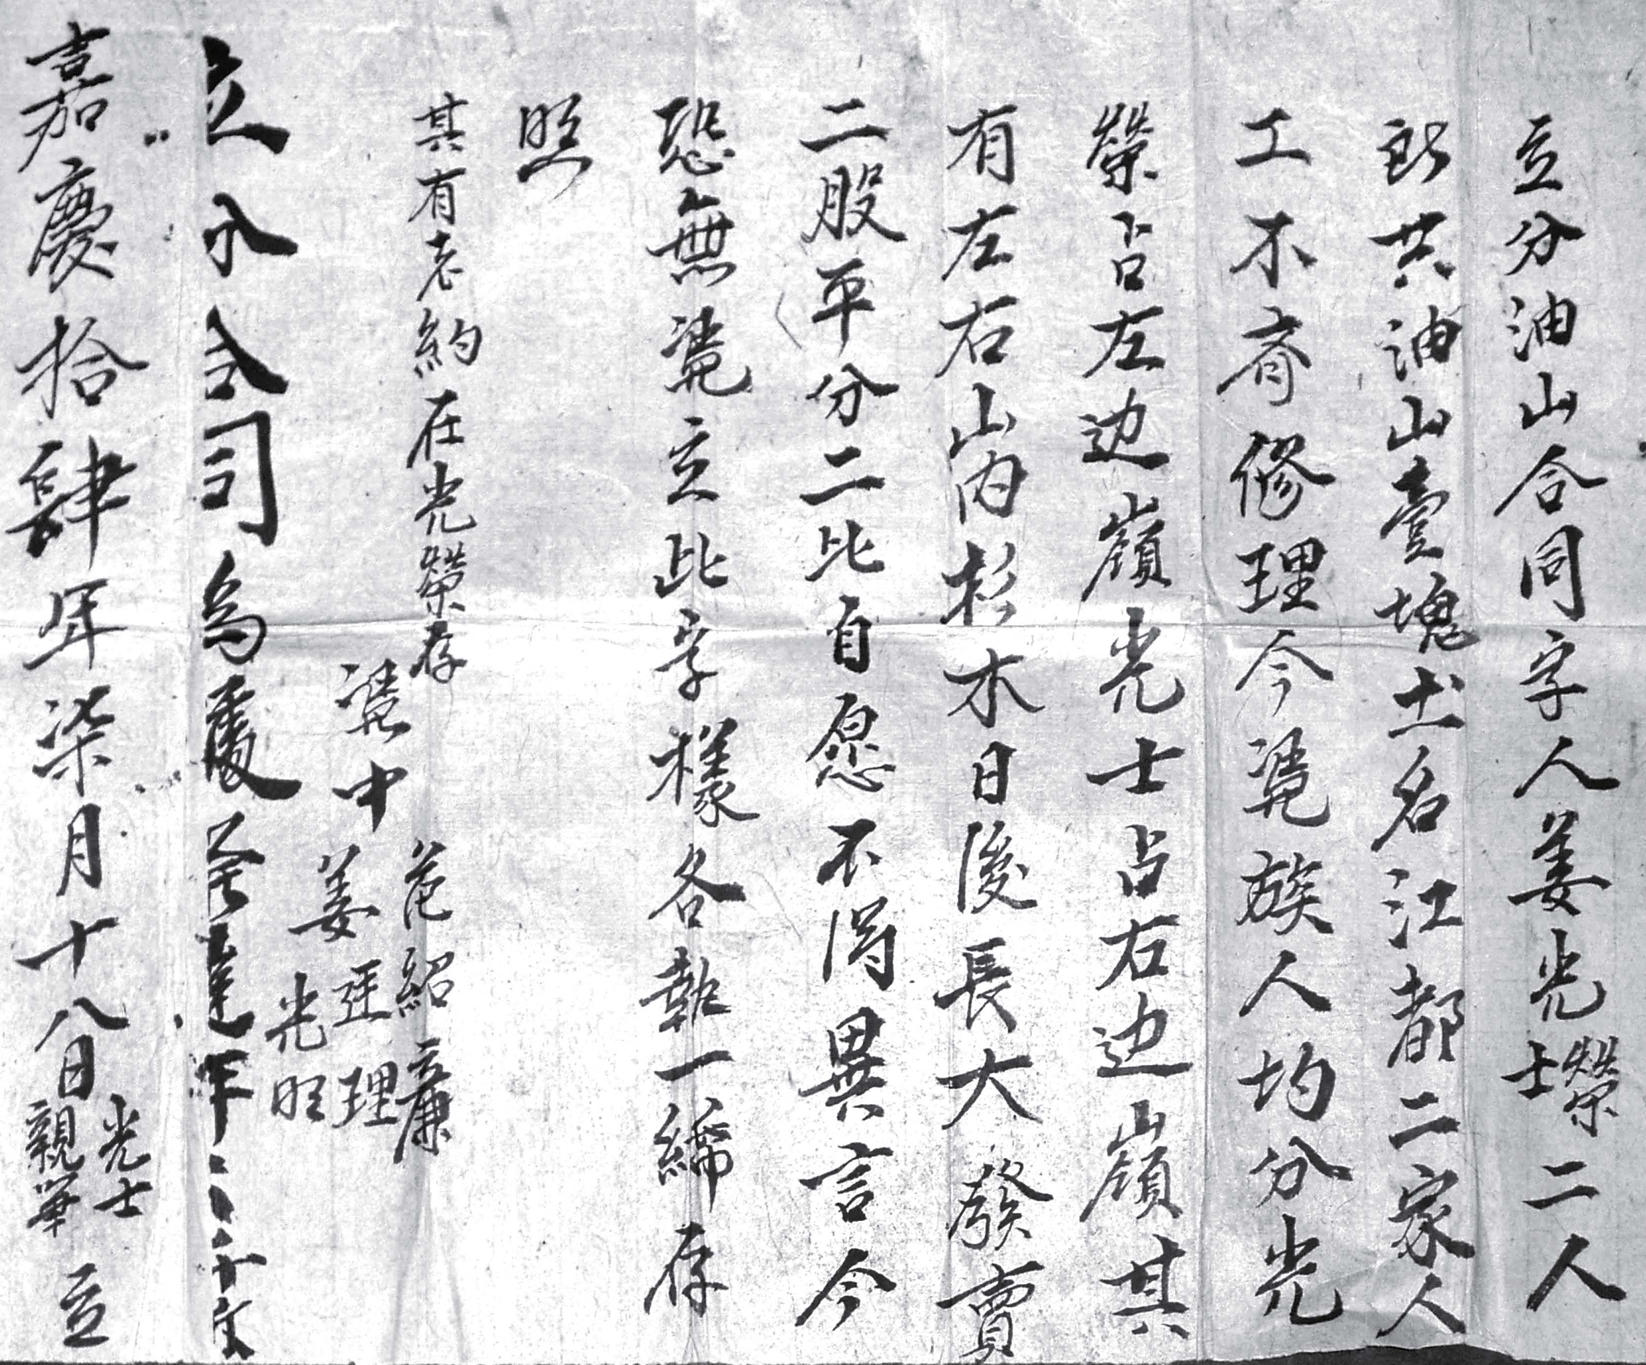 立分油山合同字人姜光士榮二人
所共油山壹塊土名江都二家人
工不齊修理今憑族人均分光
榮占左边嶺光士占右边嶺其
有左右山内杉木日後長大發賣
二股平分二比自愿不得異言今
恐無憑立此字樣各執一紙存
照
其有老約在光榮存
憑中
范紹廉
姜廷理
光旺
立分合同為
嘉慶拾肆年柒月十八日光士親筆立